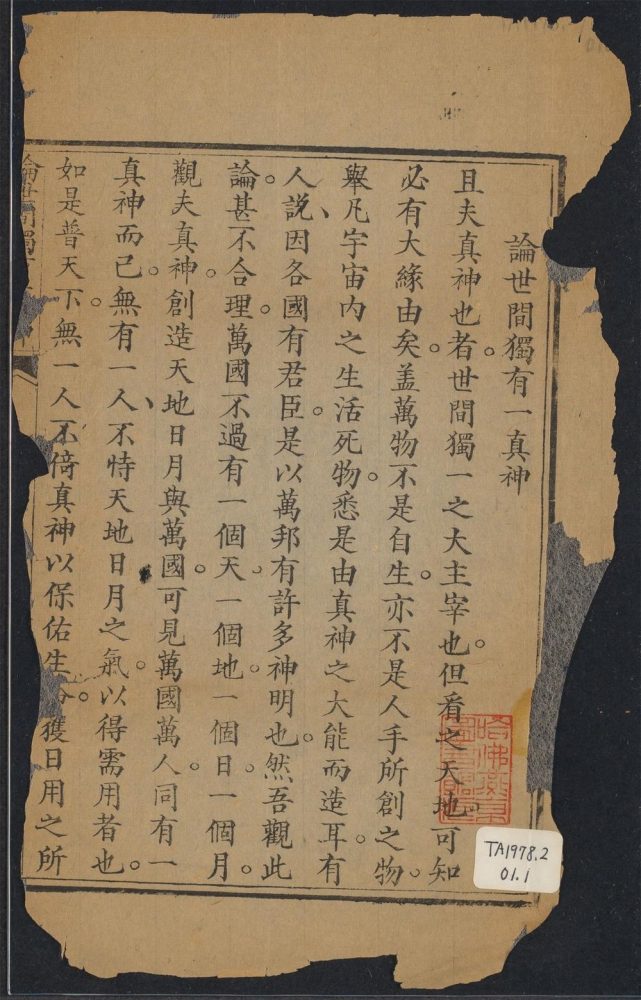 論世間獨有一真神
且夫真神也者。世間獨一之大主宰也。但看之天地可知
必有大緣由矣。盖萬物不是自生。亦不是人手所創之物。
舉凡宇宙內之生活死物。悉是由真神之大能而造耳。有
人說、因各國有君臣。是以萬邦有許多神明也。然吾觀此
論。甚不合理。萬國不過有一個天。一個地。一個日。一個月。
觀夫真神。創造天地日月與萬國。可見萬國萬人。同有一
真神而已。無有一人、不恃天地日月之氣。以得需用者也。
如是普天下。無一人不倚真神以保佑生。獲日用之所
論世間獨有
哈佛燕京
圖書館
TA1978.2
01.1